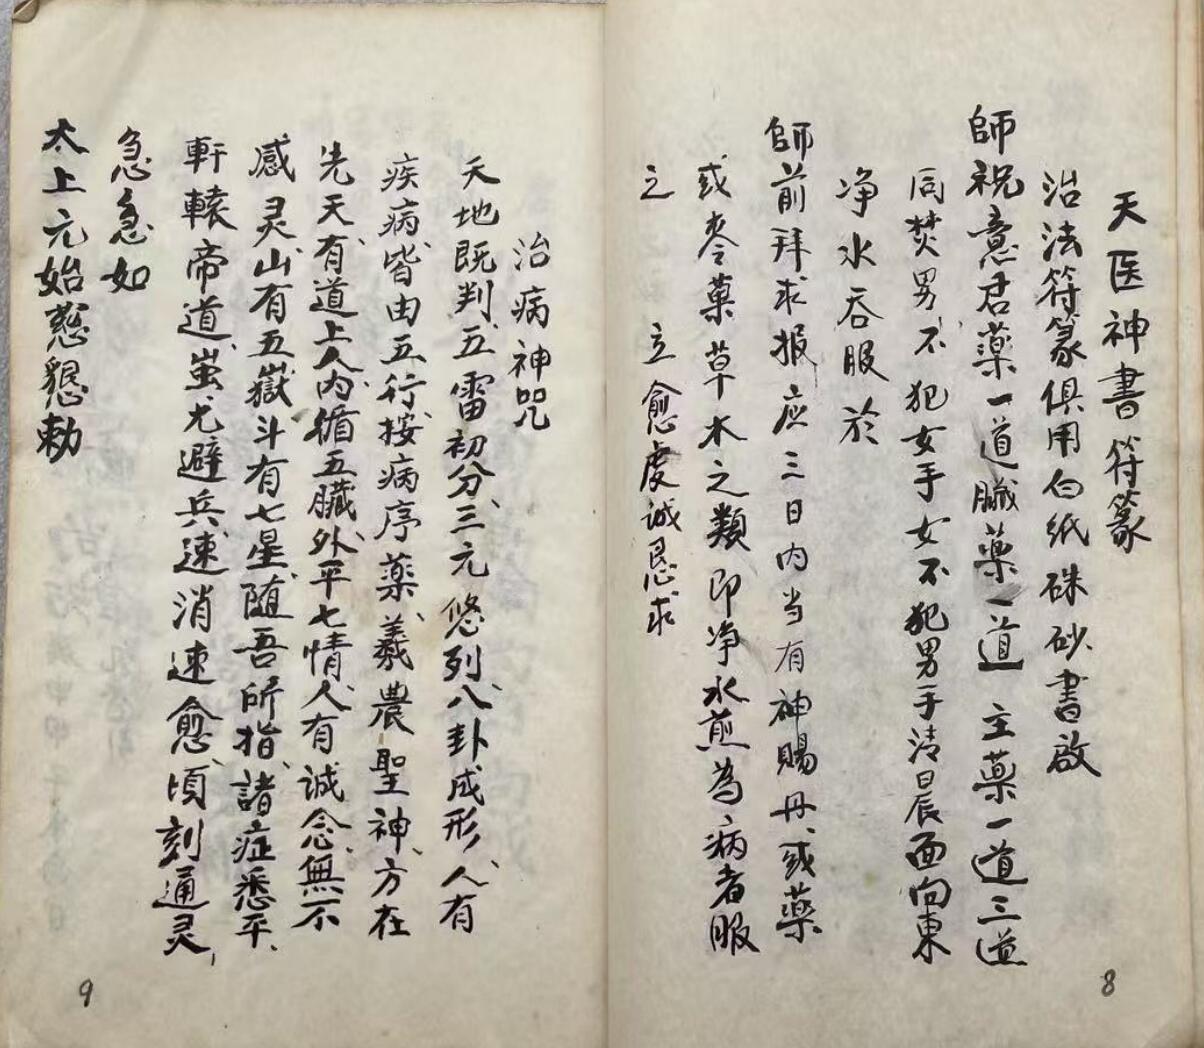 天医神書符篆
治法符篆俱用白紙硃砂書啟
師祝意君薬一道臟薬一道 主薬一道三道
同焚男不犯女手女不犯男手清晨面向東
净水吞服於
師前拜求报应三日内当有神賜丹或薬
或枣菓草木之類即净水煎為病者服
之 立愈虔诚恳求
8
治病神咒
天地既判、五雷初分、三元悠列、八卦成形、人有
疾病、皆由五行、按病序薬、羲農聖神、方在
先天、有道上人、内循五臟、外平七情、人有诚念、無不
感灵、山有五嶽、斗有七星、随吾所指、諸症悉平、
軒轅帝道、蚩尤避兵、速消速愈、頃刻通灵，
急急如
太上元始慈懇勅
9